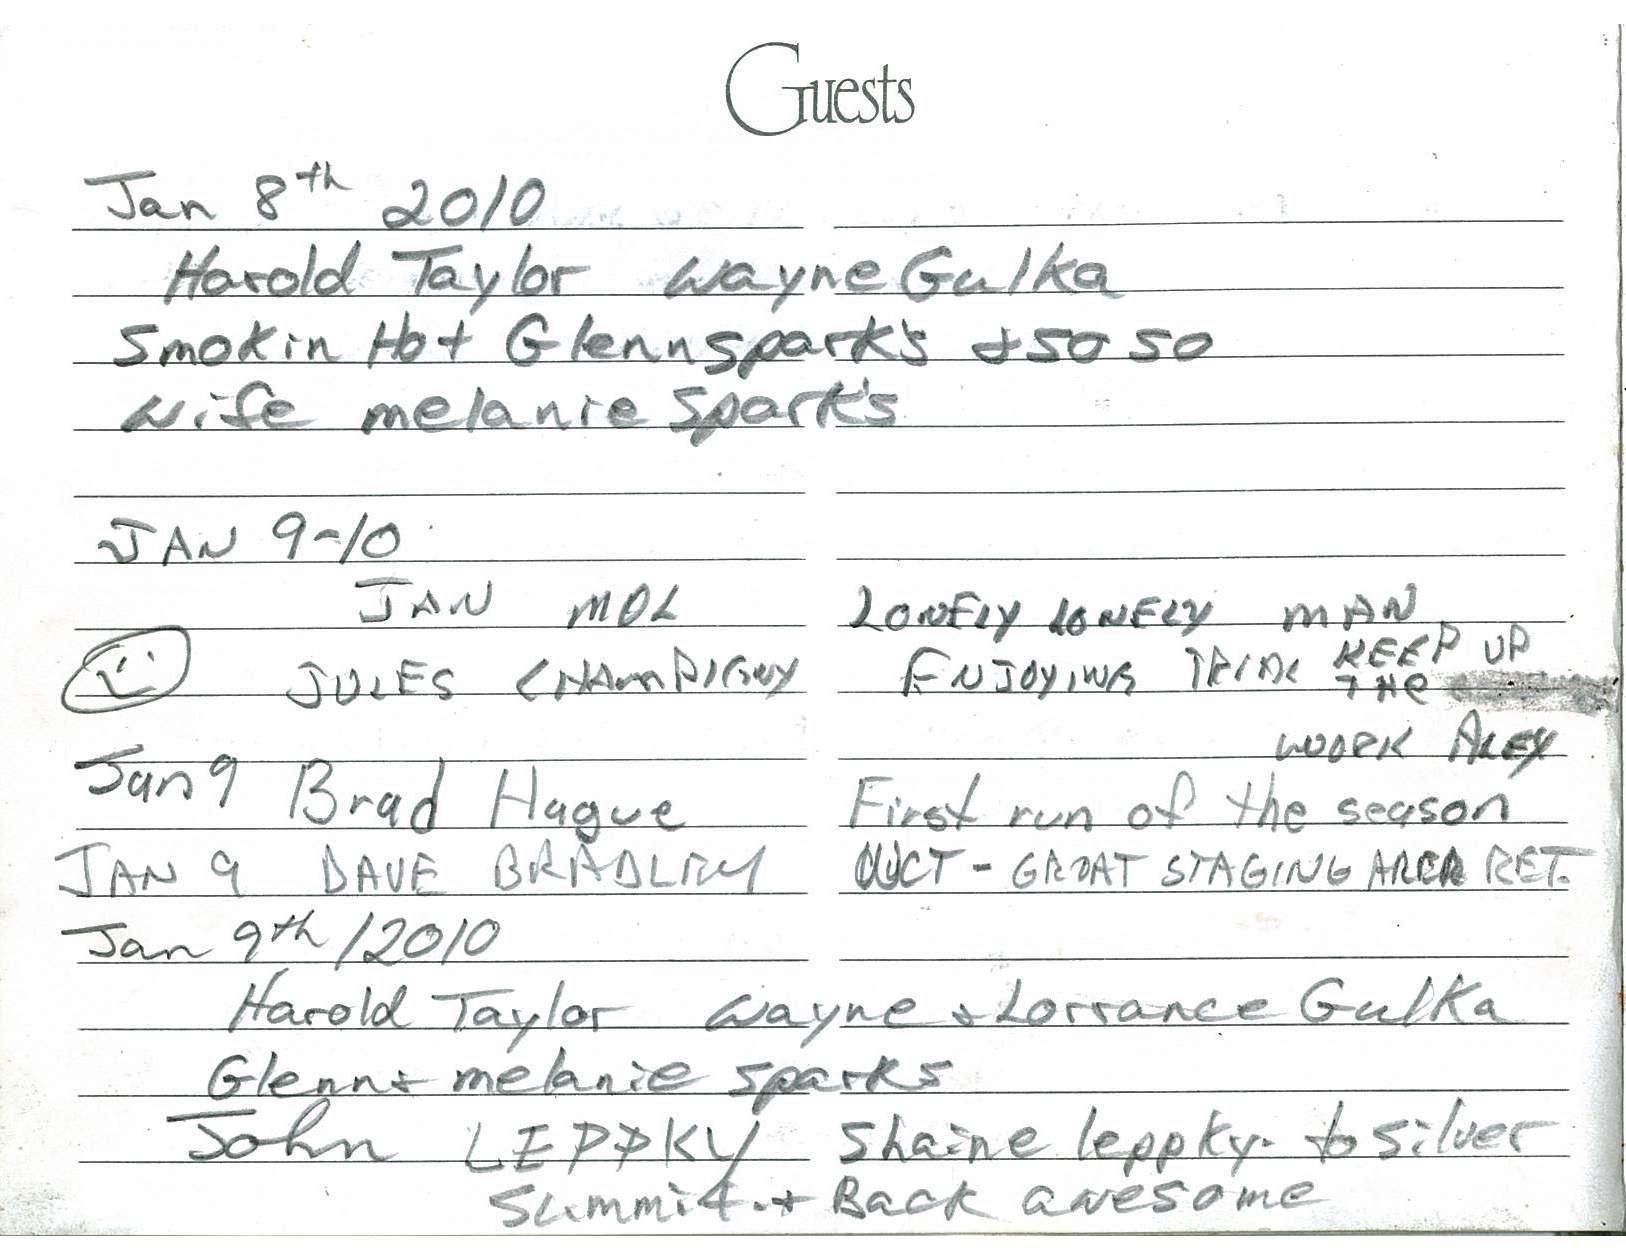 Guests
Jan 8th 2010
Harold Taylor Wayne Gulka
Smokin Hot Glenn Spark's + so so
wife melanie Spark's
JAN 9-10
JAN MOL LONELY LONELY MAN
JULES CHAMPIGNY ENJOYING TRIAL KEEP UP
THE
WORK ALEX
Jan 9 Brad Hague First run of the season
JAN 9 DAVE BRADLEY - GREAT STAGING AREA RET.
Jan 9th/2010
Harold Taylor Wayne + Lorrance Gulka
Glenn + melanie sparks
John LEPPKY Shaine leppky. to silver
Summit. + Back awesome